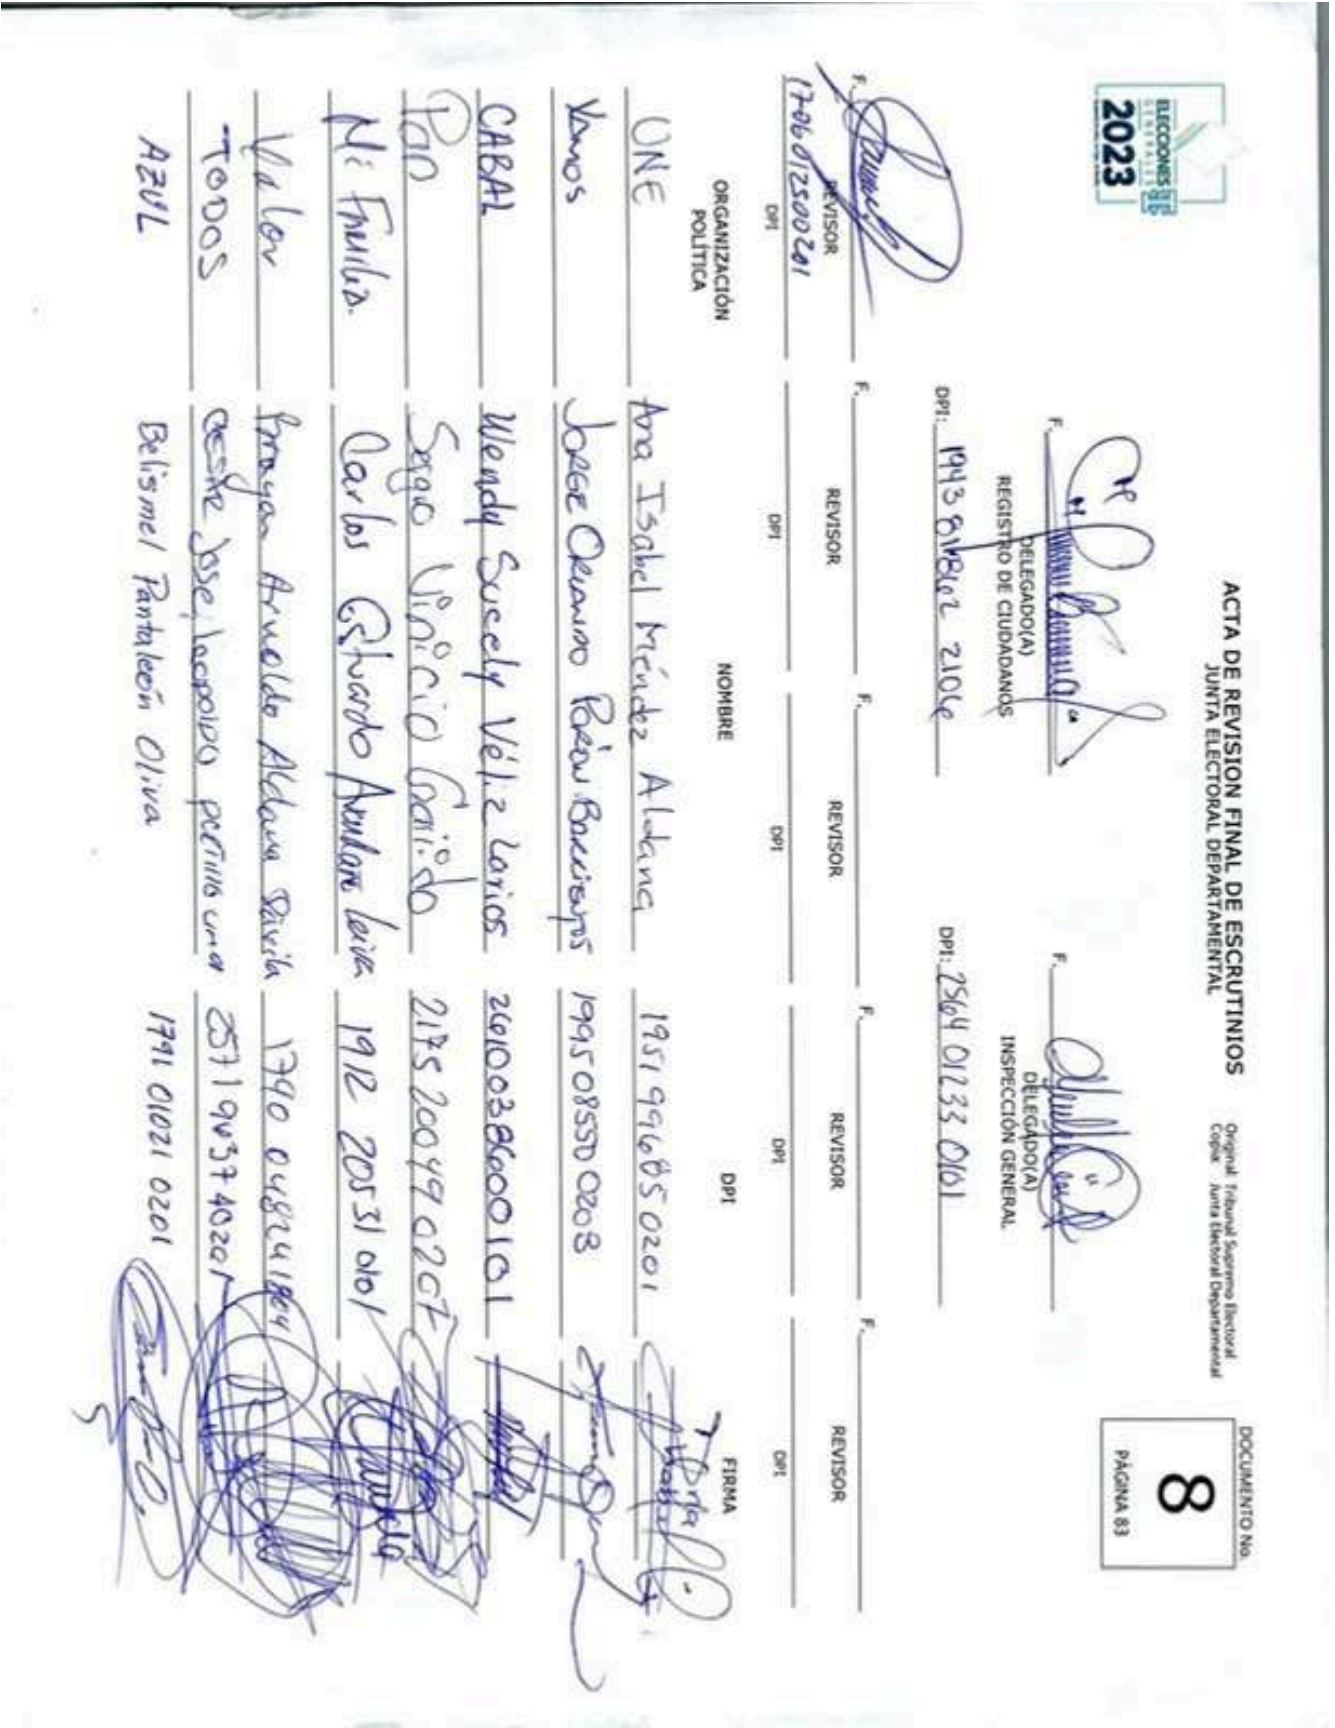 ELECCIONES
GENERALES
2023
ACTA DE REVISION FINAL DE ESCRUTINIOS
JUNTA ELECTORAL DEPARTAMENTAL
Original: Tribunal Supremo Electoral
Copia: Junta Electoral Departamental
DOCUMENTO No.
8
PÁGINA 83
F. F.
DELEGADO(A) DELEGADO(A)
REGISTRO DE CIUDADANOS INSPECCIÓN GENERAL
DPI: DPI: 2564 01233 0101
F. F. F. F. F.
REVISOR REVISOR REVISOR REVISOR REVISOR
1706012500201
DPI DPI DPI DPI DPI
ORGANIZACIÓN POLÍTICA NOMBRE DPI FIRMA
UNE Ana Isabel Méndez Aldana 1951996850201
Vamos JORGE ORLANDO Barrientos 1995085500203
CABAL Wendy Sucely Véliz Larios 2610038600101
Pan Sergio Vinicio 2175200490207
Mi Familia. Carlos Estuardo Leiva 1912 20531 0101
Valor Brayan Arnoldo Aldana Dávila 1790
TODOS José Leopoldo 2571943740201
AZUL Belismel Pantaleón Oliva 1791 01021 0201